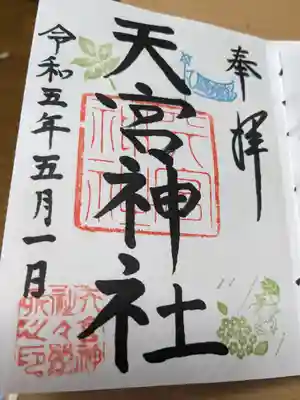 奉拝
天宮神社
令和五年五月一日